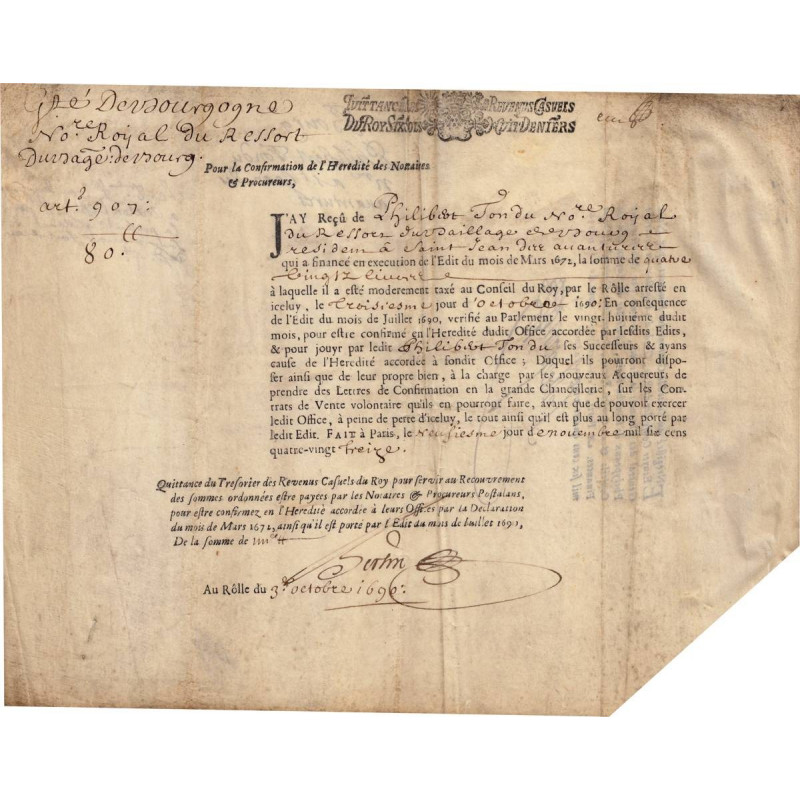 gté De Bourgogne
Nore Royal Du Ressort
Du Bage de Bourg.
arto 907:
80. tt
QUITTANCE REVENUS CASUELS
DU ROY SIX HUIT DENIERS
Pour la Confirmation de l'Heredité des Notaires
& Procureurs,
J'AY Reçû de Philibert Tondu Nore Royal
du Ressort du Baillage de Bourg
resident à Saint Jean
qui a financé en execution de l'Edit du mois de Mars 1672, la somme de quatre
vingtz livres
à laquelle il a esté moderement taxé au Conseil du Roy, par le Rôlle arresté en
iceluy, le troisiesme jour d'octobre 1690: En consequence
de l'Edit du mois de Juillet 1690, verifié au Parlement le vingt-huitiéme dudit
mois, pour estre confirmé en l'Heredité dudit Office accordée par lesdits Edits,
& pour jouyr par ledit Philibert Tondu ses Successeurs & ayans
cause de l'Heredité accordée à sondit Office ; Duquel ils pourront dispo-
ser ainsi que de leur propre bien, à la charge par les nouveaux Acquereurs de
prendre des Lettres de Confirmation en la grande Chancellerie, sur les Con-
trats de Vente volontaire qu'ils en pourront faire, avant que de pouvoir exercer
ledit Office, à peine de perte d'iceluy, le tout ainsi qu'il est plus au long porté par
ledit Edit. FAIT à Paris, le neufiesme jour de novembre mil six cens
quatre-vingt treize.
Quittance du Tresorier des Revenus Casuels du Roy pour servir au Recouvrement
des sommes ordonnées estre payées par les Notaires & Procureurs Postulans,
pour estre confirmez en l'Heredité accordée à leurs Offices par la Déclaration
du mois de Mars 1672, ainsi qu'il est porté par l'Edit du mois de Juillet 1690,
De la somme de
Bertin
Au Rôlle du 3e octobre 1690.